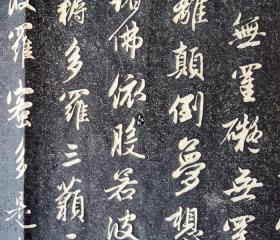 無罣礙無罣
離顛倒夢想
諸佛依般若波
耨多羅三藐三
波羅蜜多是